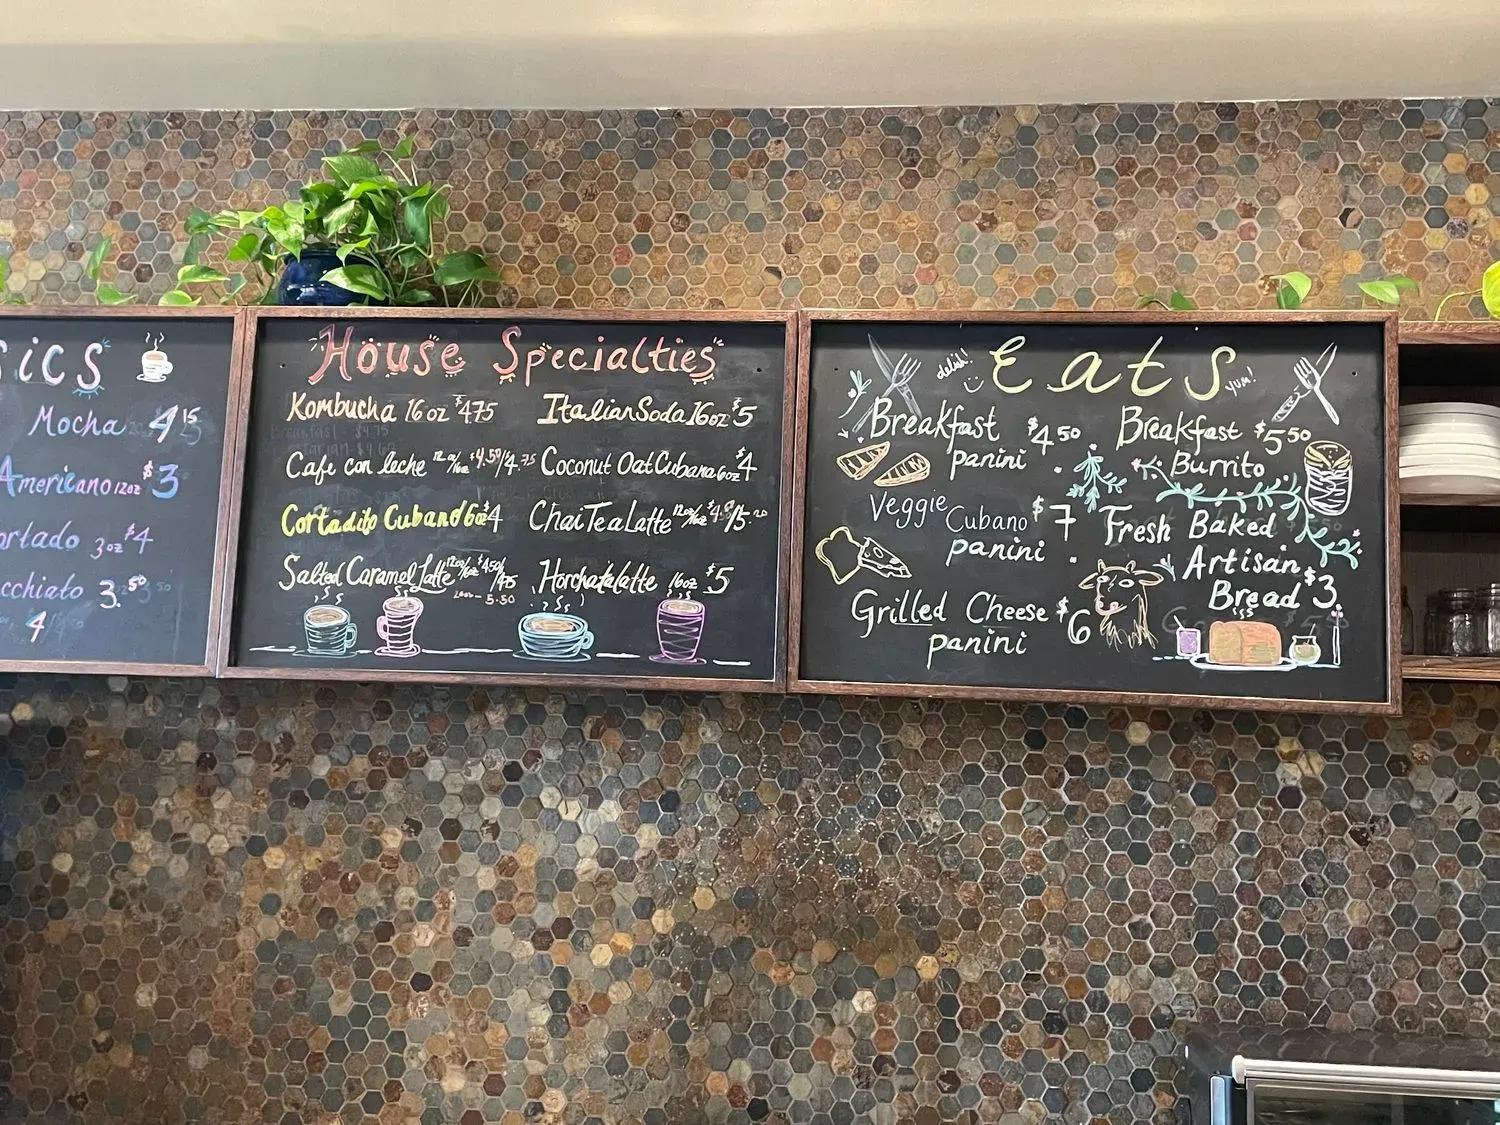 sics
Mocha 4 15
Americano 12oz $3
rtado 3oz $4
cchiato 3.50
4
House Specialties
Kombucha 16oz $4.75
Cafe con leche 12oz/16oz $4.50/4.75
Cortadito Cubano 6oz $4
Salted Caramel Latte 12oz/16oz $4.50/4.75
20oz - 5.50
Italian Soda 16oz $5
Coconut Oat Cubana 6oz $4
Chai Tea Latte 12oz/16oz
Horchata latte 16oz $5
delish!
Eats
yum!
Breakfast
panini $4.50
Veggie Cubano
panini $7
Grilled Cheese
panini $6
Breakfast
Burrito $5.50
Fresh Baked
Artisan
Bread $3